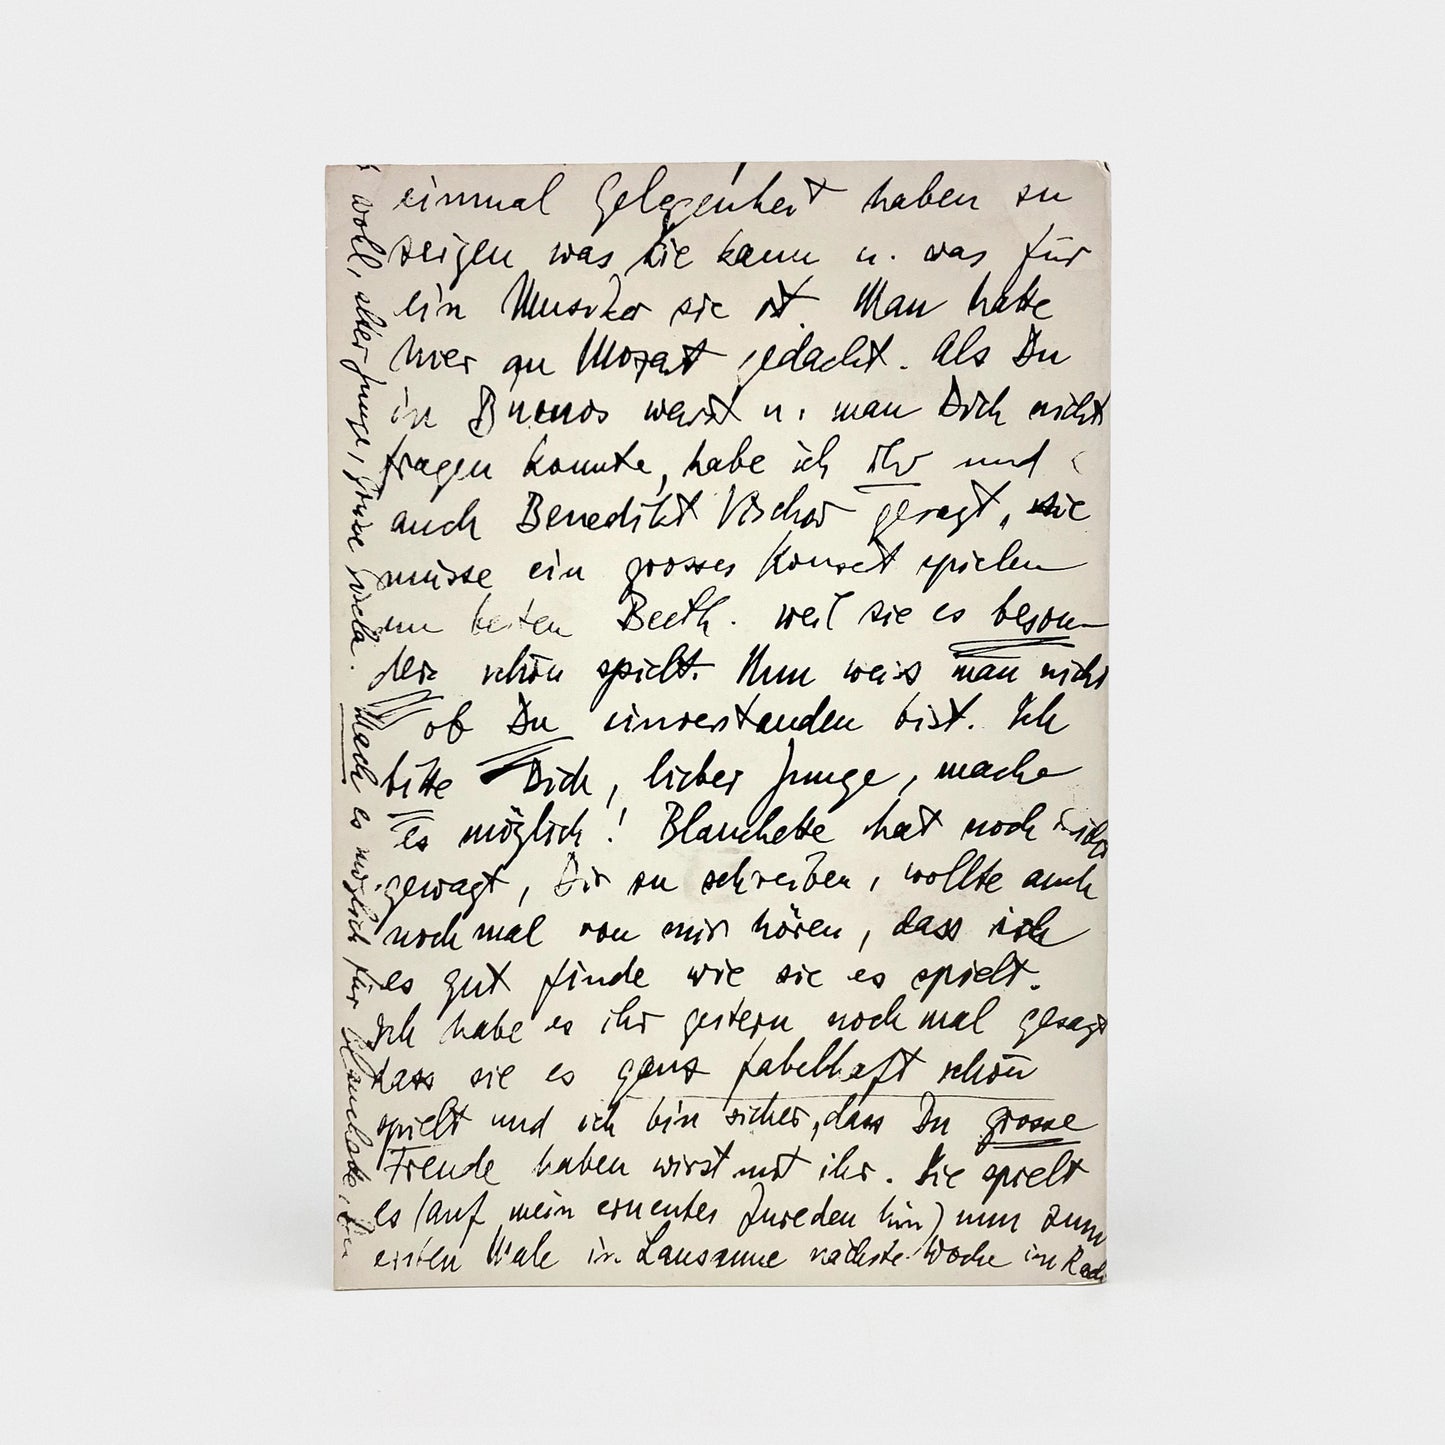 einmal Gelegenheit haben zu
zeigen was sie kann u. was für
ein Musiker sie ist. Man hatte
hier an Mozart gedacht. Als Du
in Buenos warst u. man Dich nicht
fragen konnte, habe ich ihr und
auch Benedikt Vischer gesagt, sie
müsse ein grosses Konzert spielen
am besten Beeth. weil sie es beson-
ders schön spielt. Nun weiss man nicht
ob Du einverstanden bist. Ich
bitte Dich, lieber Junge, mache
es möglich! Blanchette hat noch nicht
gewagt, Dir zu schreiben, wollte auch
noch mal von mir hören, dass ich
es gut finde wie sie es spielt.
Ich habe es ihr gestern noch mal gesagt
dass sie es ganz fabelhaft schön
spielt und ich bin sicher, dass Du grosse
Freude haben wirst mit ihr. Sie spielt
es (auf mein erneutes Zureden hin) nun zum
ersten Male in Lausanne nächste Woche im Radio
wohl, alter Junge, grüsse Gisela. Mach es möglich für Blanchette